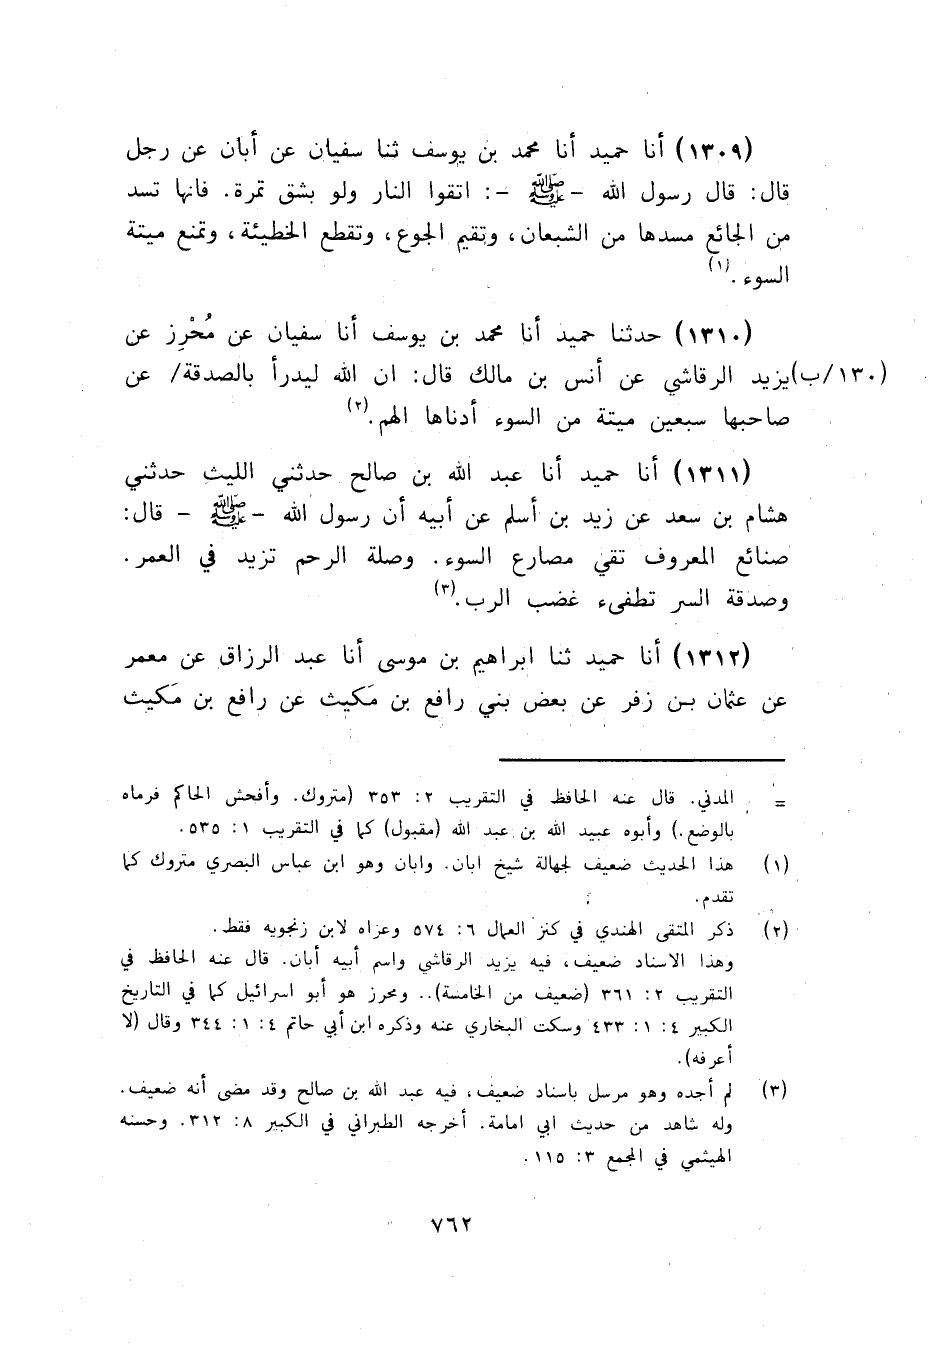 (١٣٠٩) أنا حميد أنا محمد بن يوسف ثنا سفيان عن أبان عن رجل
قال: قال رسول الله - ﷺ -: اتقوا النار ولو بشق تمرة. فانها تسد
من الجائع مسدها من الشبعان، وتقيم الجوع، وتقطع الخطيئة، وتمنع ميتة
السوء.(١)
(١٣١٠) حدثنا حميد أنا محمد بن يوسف أنا سفيان عن مُحْرِز عن
(١٣٠/ب) يزيد الرقاشي عن أنس بن مالك قال: ان الله ليدرأ بالصدقة/ عن
صاحبها سبعين ميتة من السوء أدناها الهم.(٢)
(١٣١١) أنا حميد أنا عبد الله بن صالح حدثني الليث حدثني
هشام بن سعد عن زيد بن أسلم عن أبيه أن رسول الله - ﷺ - قال:
صنائع المعروف تقي مصارع السوء. وصلة الرحم تزيد في العمر.
وصدقة السر تطفىء غضب الرب.(٣)
(١٣١٢) أنا حميد ثنا ابراهيم بن موسى أنا عبد الرزاق عن معمر
عن عثمان بن زفر عن بعض بني رافع بن مَكيث عن رافع بن مَكيث
= المدني. قال عنه الحافظ في التقريب ٢: ٣٥٣ (متروك. وأفحش الحاكم فرماه
بالوضع.) وأبوه عبيد الله بن عبد الله (مقبول) كما في التقريب ١: ٥٣٥.
(١) هذا الحديث ضعيف لجهالة شيخ ابان. وابان وهو ابن عباس البصري متروك كما
تقدم.
(٢) ذكر المتقى الهندي في كنز العمال ٦: ٥٧٤ وعزاه لابن زنجويه فقط.
وهذا الاسناد ضعيف، فيه يزيد الرقاشي واسم أبيه أبان. قال عنه الحافظ في
التقريب ٢: ٣٦١ (ضعيف من الخامسة).. ومحرز هو أبو اسرائيل كما في التاريخ
الكبير ٤: ١: ٤٣٣ وسكت البخاري عنه وذكره ابن أبي حاتم ٤: ١: ٣٤٤ وقال (لا
أعرفه).
(٣) لم أجده وهو مرسل باسناد ضعيف، فيه عبد الله بن صالح وقد مضى أنه ضعيف.
وله شاهد من حديث ابي امامة. أخرجه الطبراني في الكبير ٨: ٣١٢. وحسنه
الهيثمي في المجمع ٣: ١١٥.
٧٦٢